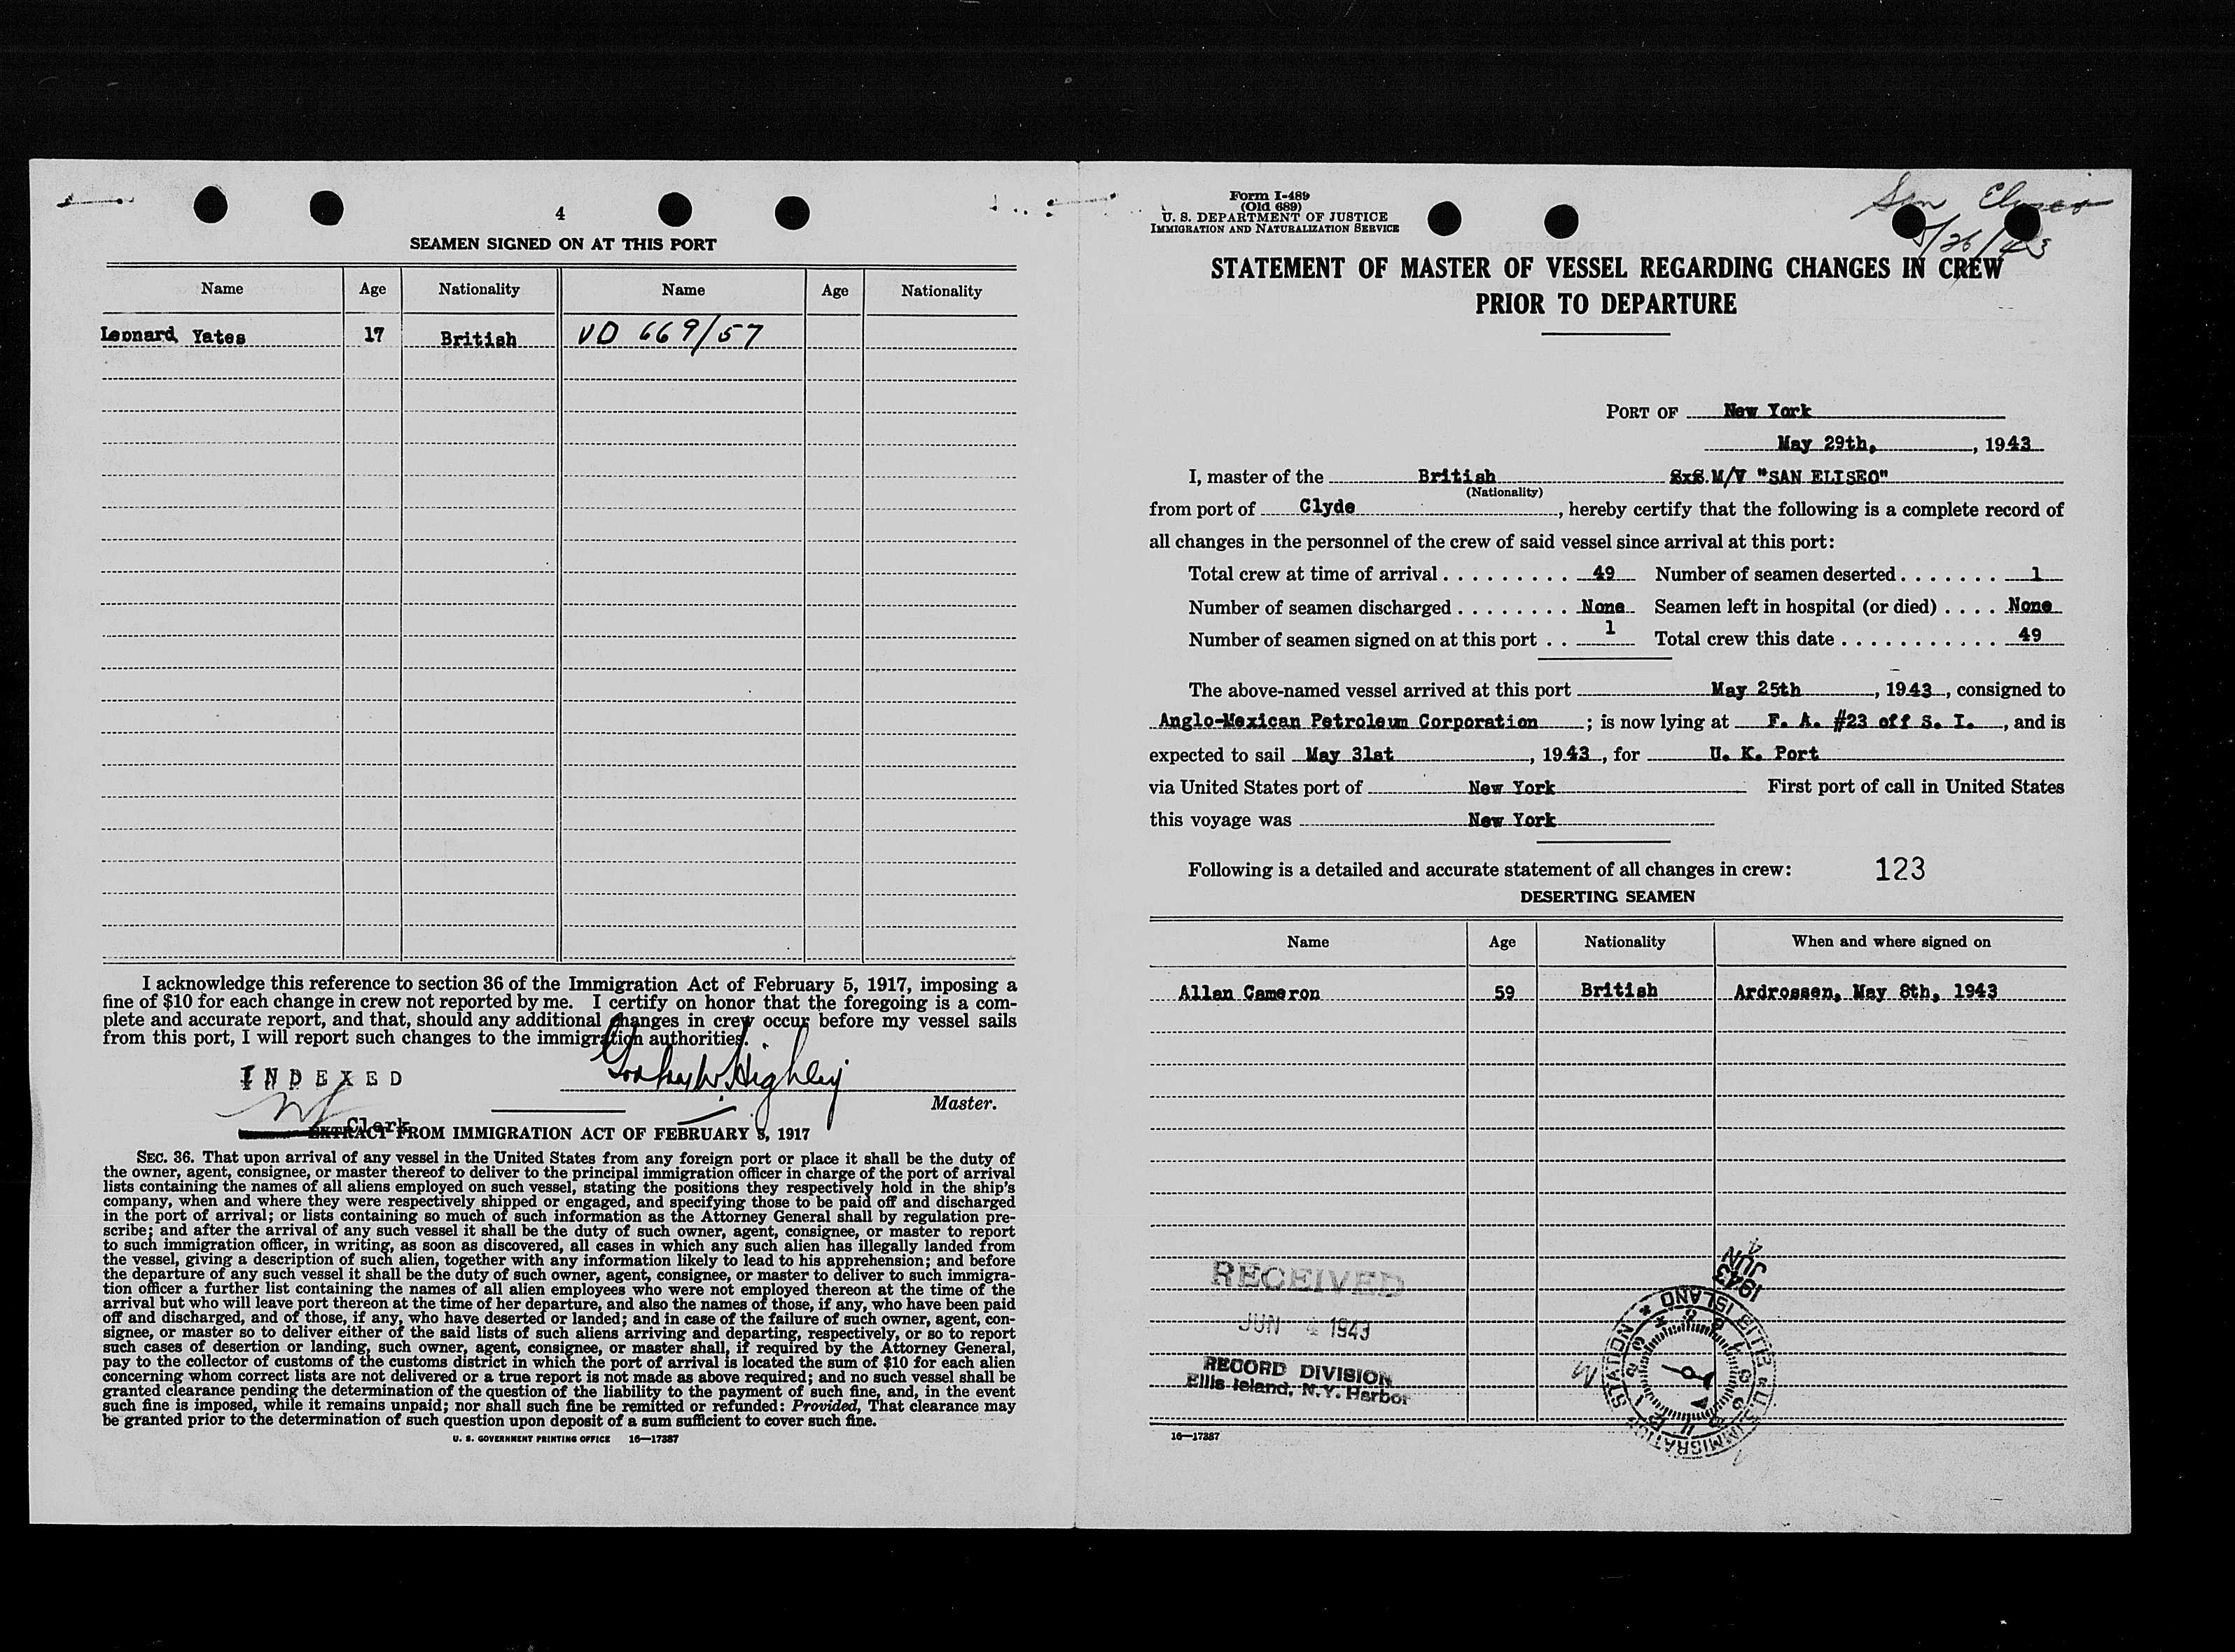 4
SEAMEN SIGNED ON AT THIS PORT
Name Age Nationality Name Age Nationality
Leonard Yates 17 British VD 669/57
I acknowledge this reference to section 36 of the Immigration Act of February 5, 1917, imposing a
fine of $10 for each change in crew not reported by me. I certify on honor that the foregoing is a com-
plete and accurate report, and that, should any additional changes in crew occur before my vessel sails
from this port, I will report such changes to the immigration authorities.
INDEXED
Master.
Clerk
EXTRACT FROM IMMIGRATION ACT OF FEBRUARY 5, 1917
SEC. 36. That upon arrival of any vessel in the United States from any foreign port or place it shall be the duty of
the owner, agent, consignee, or master thereof to deliver to the principal immigration officer in charge of the port of arrival
lists containing the names of all aliens employed on such vessel, stating the positions they respectively hold in the ship's
company, when and where they were respectively shipped or engaged, and specifying those to be paid off and discharged
in the port of arrival; or lists containing so much of such information as the Attorney General shall by regulation pre-
scribe; and after the arrival of any such vessel it shall be the duty of such owner, agent, consignee, or master to report
to such immigration officer, in writing, as soon as discovered, all cases in which any such alien has illegally landed from
the vessel, giving a description of such alien, together with any information likely to lead to his apprehension; and before
the departure of any such vessel it shall be the duty of such owner, agent, consignee, or master to deliver to such immigra-
tion officer a further list containing the names of all alien employees who were not employed thereon at the time of the
arrival but who will leave port thereon at the time of her departure, and also the names of those, if any, who have been paid
off and discharged, and of those, if any, who have deserted or landed; and in case of the failure of such owner, agent, con-
signee, or master so to deliver either of the said lists of such aliens arriving and departing, respectively, or so to report
such cases of desertion or landing, such owner, agent, consignee, or master shall, if required by the Attorney General,
pay to the collector of customs of the customs district in which the port of arrival is located the sum of $10 for each alien
concerning whom correct lists are not delivered or a true report is not made as above required; and no such vessel shall be
granted clearance pending the determination of the question of the liability to the payment of such fine, and, in the event
such fine is imposed, while it remains unpaid; nor shall such fine be remitted or refunded: Provided, That clearance may
be granted prior to the determination of such question upon deposit of a sum sufficient to cover such fine.
U. S. GOVERNMENT PRINTING OFFICE 16—17387
Form I-489
(Old 689)
U. S. DEPARTMENT OF JUSTICE
IMMIGRATION AND NATURALIZATION SERVICE
San Eliseo
5/26/43
STATEMENT OF MASTER OF VESSEL REGARDING CHANGES IN CREW
PRIOR TO DEPARTURE
PORT OF New York
May 29th, , 1943
I, master of the British SxS. M/V "SAN ELISEO"
(Nationality)
from port of Clyde , hereby certify that the following is a complete record of
all changes in the personnel of the crew of said vessel since arrival at this port:
Total crew at time of arrival . . . . . . . . . 49 Number of seamen deserted . . . . . . . 1
Number of seamen discharged . . . . . . . . None Seamen left in hospital (or died) . . . . None
Number of seamen signed on at this port . . 1 Total crew this date . . . . . . . . . . . . 49
The above-named vessel arrived at this port May 25th , 1943 , consigned to
Anglo-Mexican Petroleum Corporation ; is now lying at F. A. #23 off S. I. , and is
expected to sail May 31st , 1943 , for U. K. Port
via United States port of New York First port of call in United States
this voyage was New York
Following is a detailed and accurate statement of all changes in crew: 123
DESERTING SEAMEN
Name Age Nationality When and where signed on
Allan Cameron 59 British Ardrossen, May 8th, 1943
RECEIVED
JUN 4 1943
RECORD DIVISION
Ellis Island, N.Y. Harbor
JUN 4
1943
ELLIS ISLAND * U.S. IMMIGRATION STATION *
16—17387